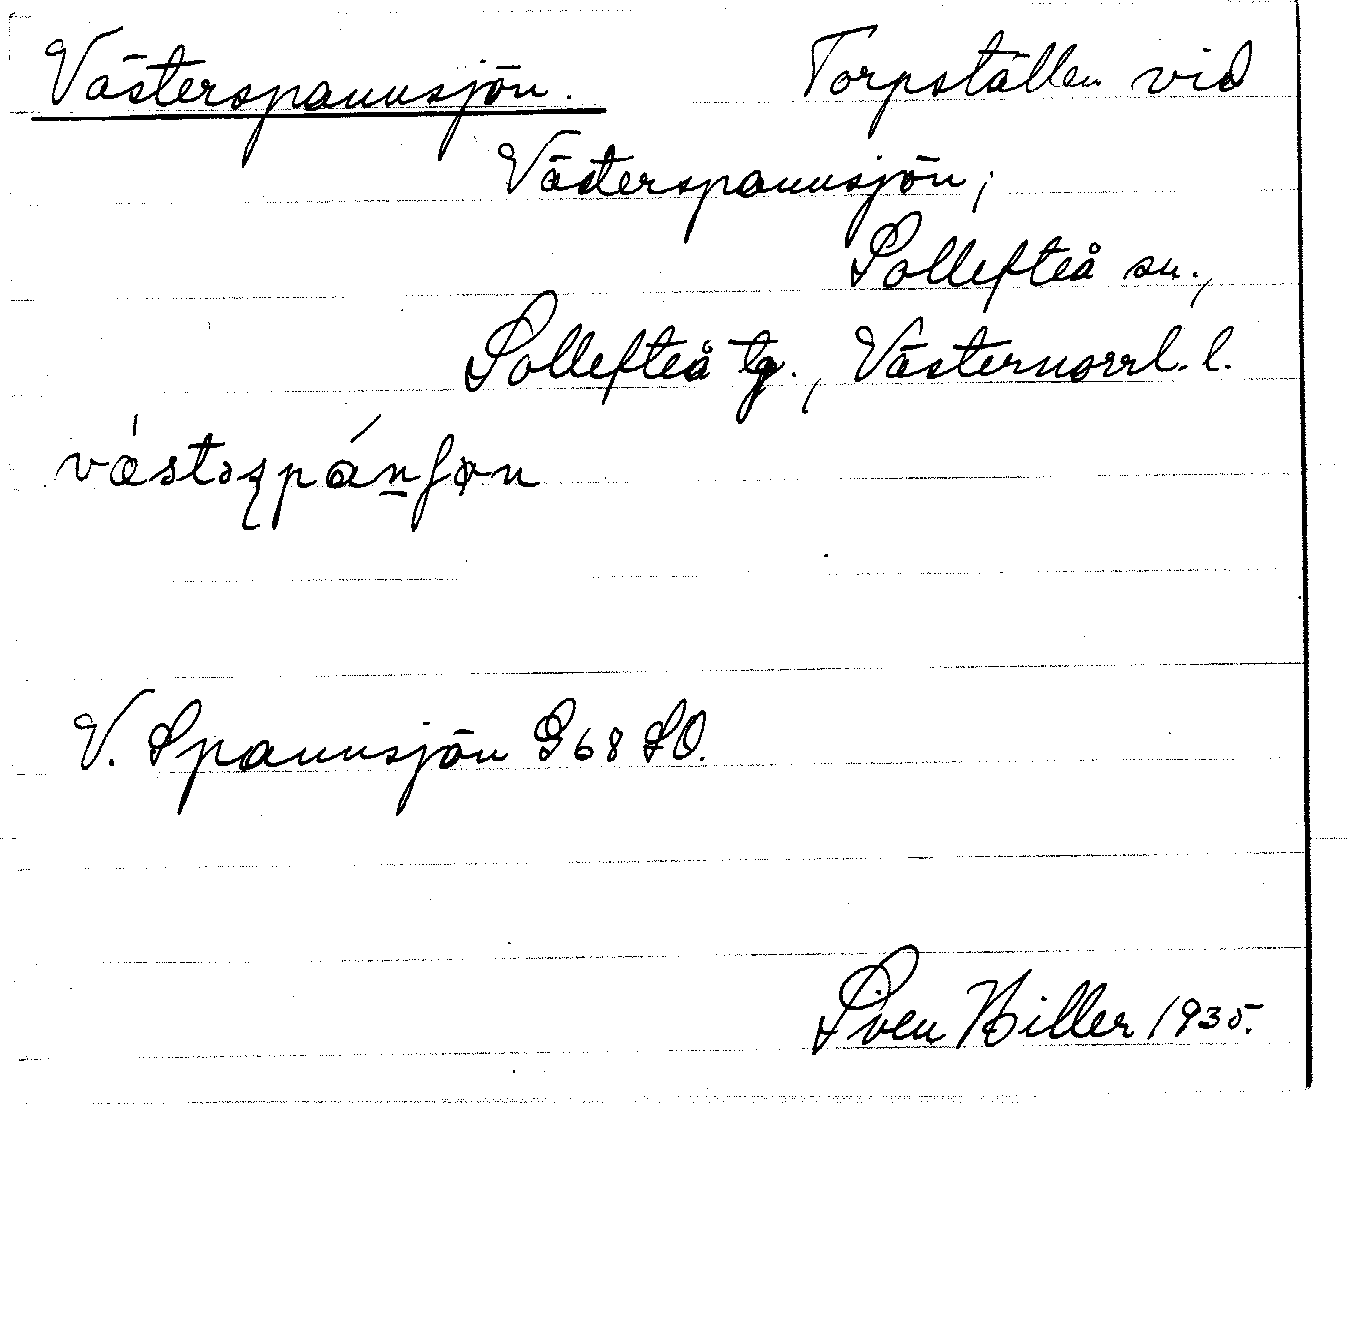 Västerspannsjön. Torpställen vid
Västerspannsjön;
Sollefteå sn.,
Sollefteå tg., Västernorrl. l.
V. Spannsjön G 68 SO.
Sven Hiller 1935.